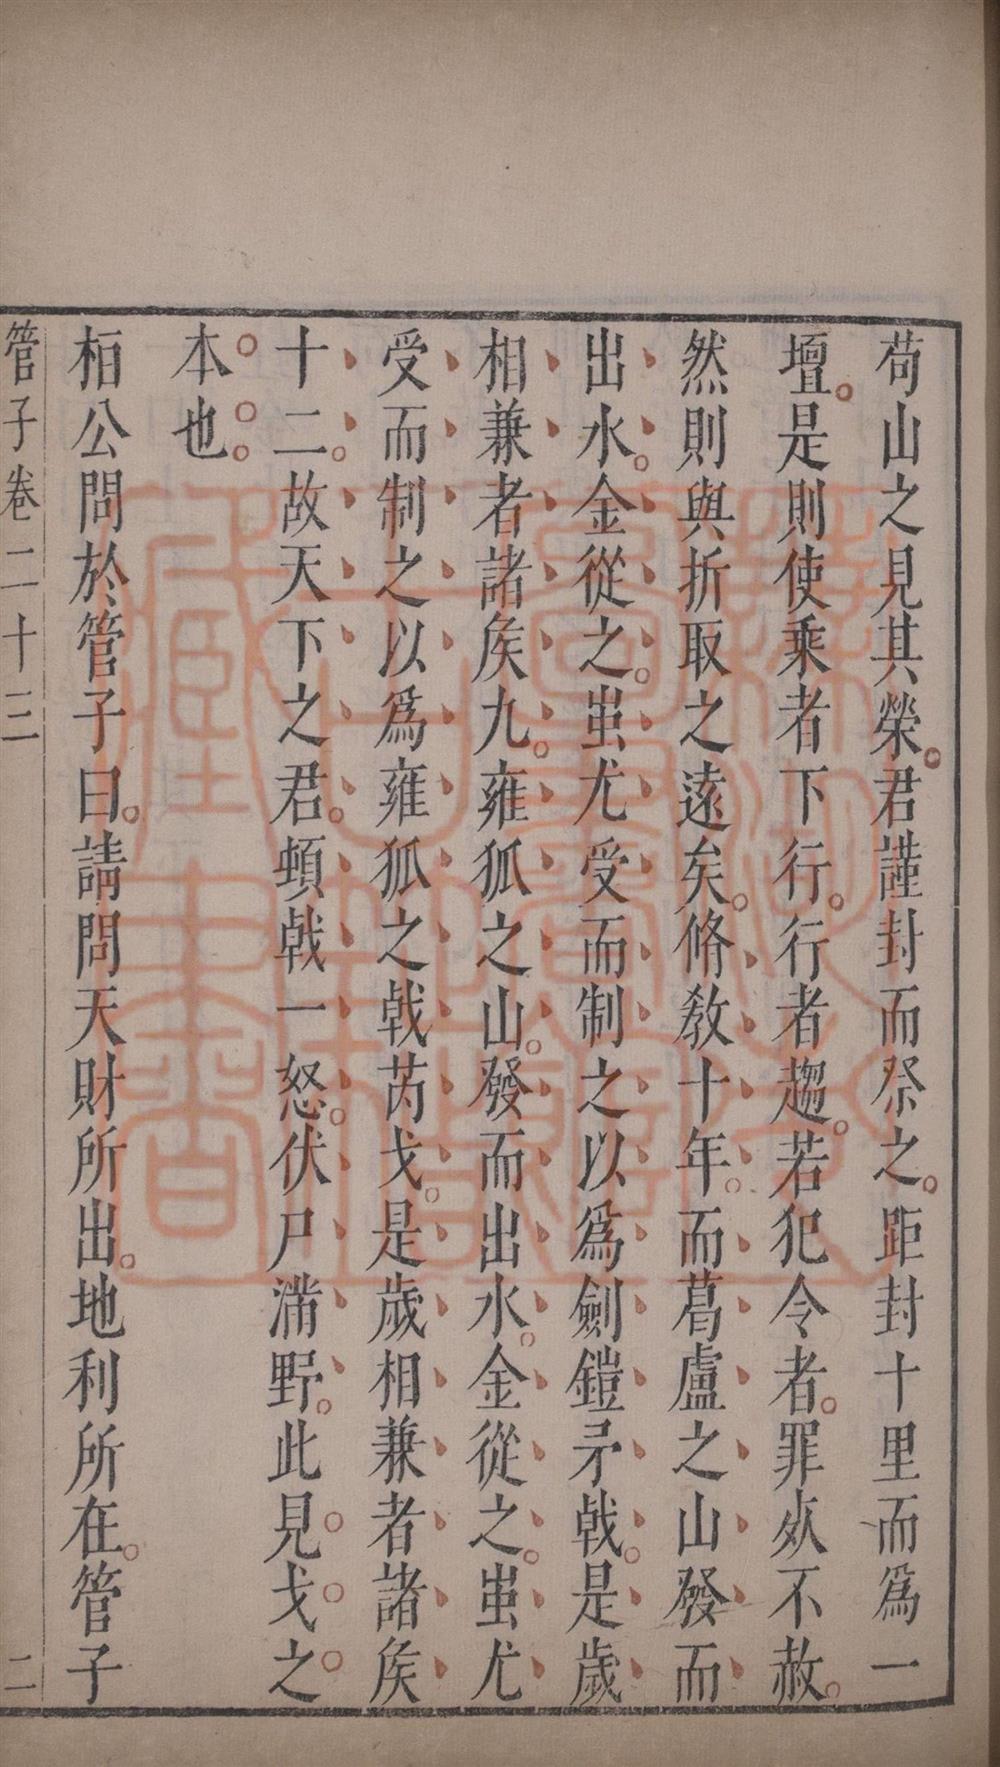 苟山之見其榮君謹封而祭之距封十里而爲一
壇是則使乘者下行行者趨若犯令者罪死不赦
然則與折取之遠矣脩教十年而葛盧之山發而
出水金從之蚩尤受而制之以爲劍鎧矛戟是歲
相兼者諸矦九雍狐之山發而出水金從之蚩尤
受而制之以爲雍狐之戟芮戈是歲相兼者諸矦
十二故天下之君頓戟一怒伏尸滿野此見戈之
本也
桓公問於管子曰請問天財所出地利所在管子
管子卷二十三 二